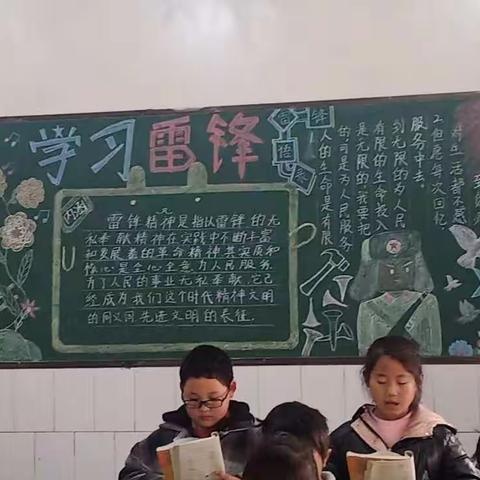 学习雷锋
内涵
雷锋精神是指以雷锋的无
私奉献精神在实践中不断丰富
和发展着的革命精神其实质和
核心是全心全意为人民服务
为了人民的事业无私奉献.它已
经成为我们这个时代精神文明
的同义词先进文明的表征.
雷锋
人的生命是有限
的可是为人民服务
是无限的,我要把
有限的生命投入
到无限的为人民
服务中去。
2.但愿每次回忆,
对生活都不感
到